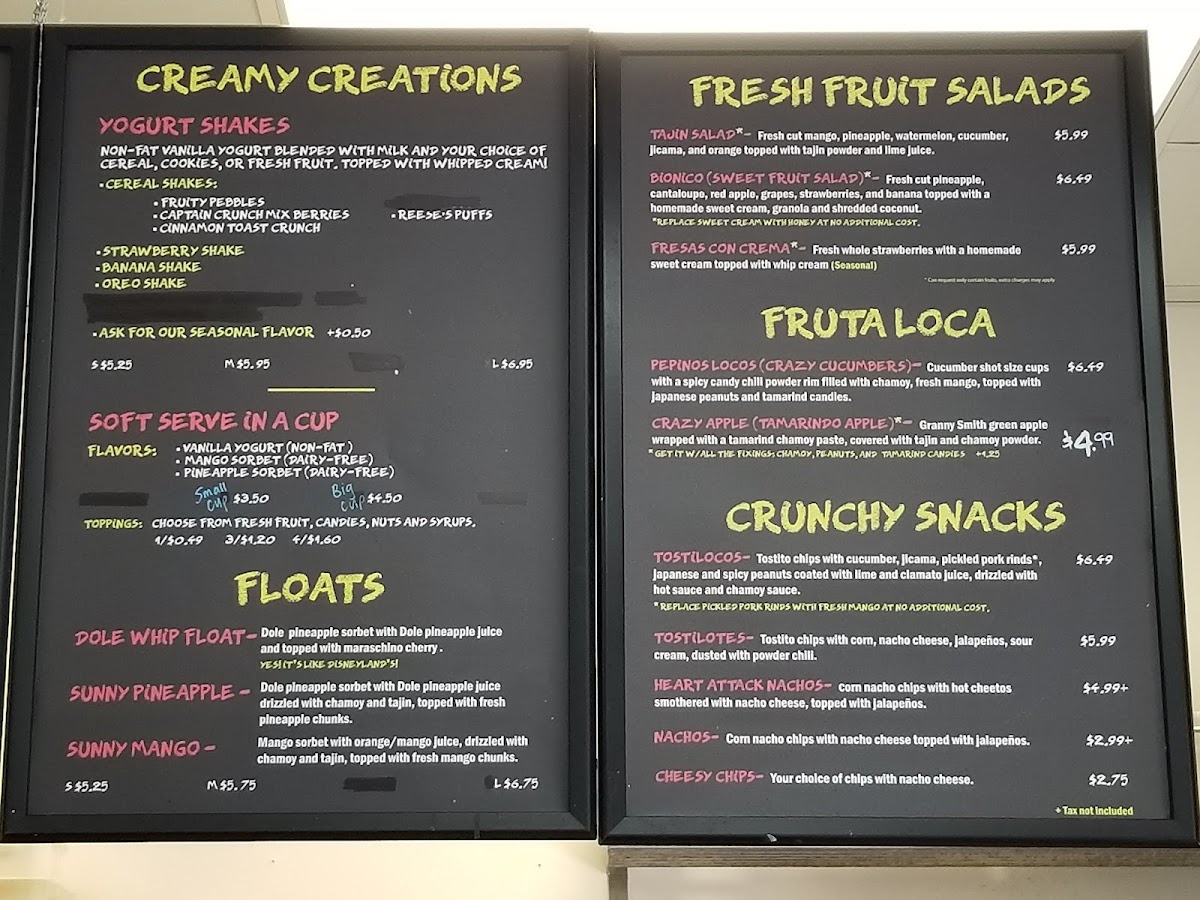 CREAMY CREATIONS
YOGURT SHAKES
NON-FAT VANILLA YOGURT BLENDED WITH MILK AND YOUR CHOICE OF
CEREAL, COOKIES, OR FRESH FRUIT. TOPPED WITH WHIPPED CREAM!
• CEREAL SHAKES:
• FRUITY PEBBLES
• CAPTAIN CRUNCH MIX BERRIES • REESE'S PUFFS
• CINNAMON TOAST CRUNCH
• STRAWBERRY SHAKE
• BANANA SHAKE
• OREO SHAKE
• ASK FOR OUR SEASONAL FLAVOR +$0.50
S $5.25 M $5.95 L $6.95
SOFT SERVE IN A CUP
FLAVORS: • VANILLA YOGURT (NON-FAT)
• MANGO SORBET (DAIRY-FREE)
• PINEAPPLE SORBET (DAIRY-FREE)
Small cup $3.50 Big cup $4.50
TOPPINGS: CHOOSE FROM FRESH FRUIT, CANDIES, NUTS AND SYRUPS.
1/$0.49 3/$1.20 4/$1.60
FLOATS
DOLE WHIP FLOAT- Dole pineapple sorbet with Dole pineapple juice
and topped with maraschino cherry.
YES! IT'S LIKE DISNEYLAND'S!
SUNNY PINEAPPLE - Dole pineapple sorbet with Dole pineapple juice
drizzled with chamoy and tajin, topped with fresh
pineapple chunks.
SUNNY MANGO - Mango sorbet with orange/mango juice, drizzled with
chamoy and tajin, topped with fresh mango chunks.
S $5.25 M $5.75 L $6.75
FRESH FRUIT SALADS
TAJIN SALAD*- Fresh cut mango, pineapple, watermelon, cucumber, $5.99
jicama, and orange topped with tajin powder and lime juice.
BIONICO (SWEET FRUIT SALAD)*- Fresh cut pineapple, $6.49
cantaloupe, red apple, grapes, strawberries, and banana topped with a
homemade sweet cream, granola and shredded coconut.
*REPLACE SWEET CREAM WITH HONEY AT NO ADDITIONAL COST.
FRESAS CON CREMA*- Fresh whole strawberries with a homemade $5.99
sweet cream topped with whip cream (Seasonal)
* Can request only certain fruits, extra charges may apply
FRUTA LOCA
PEPINOS LOCOS (CRAZY CUCUMBERS)- Cucumber shot size cups $6.49
with a spicy candy chili powder rim filled with chamoy, fresh mango, topped with
japanese peanuts and tamarind candies.
CRAZY APPLE (TAMARINDO APPLE)*- Granny Smith green apple
wrapped with a tamarind chamoy paste, covered with tajin and chamoy powder. $4.99
* GET IT W/ALL THE FIXINGS; CHAMOY, PEANUTS, AND TAMARIND CANDIES +1.25
CRUNCHY SNACKS
TOSTILOCOS- Tostito chips with cucumber, jicama, pickled pork rinds*, $6.49
japanese and spicy peanuts coated with lime and clamato juice, drizzled with
hot sauce and chamoy sauce.
*REPLACE PICKLED PORK RINDS WITH FRESH MANGO AT NO ADDITIONAL COST.
TOSTILOTES- Tostito chips with corn, nacho cheese, jalapeños, sour $5.99
cream, dusted with powder chili.
HEART ATTACK NACHOS- Corn nacho chips with hot cheetos $4.99+
smothered with nacho cheese, topped with jalapeños.
NACHOS- Corn nacho chips with nacho cheese topped with jalapeños. $2.99+
CHEESY CHIPS- Your choice of chips with nacho cheese. $2.75
+ Tax not included